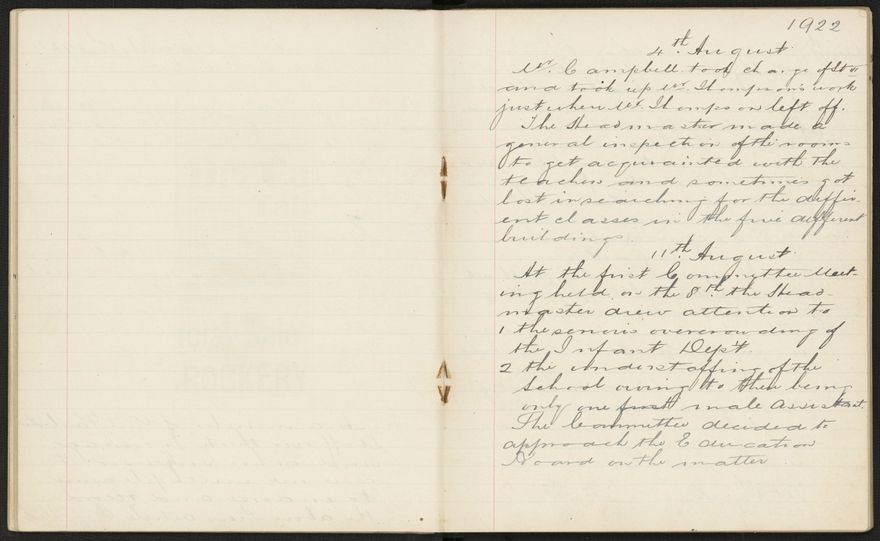 1922
4th. August.
Mr. Campbell took charge of St VI
and took up Mr. Thompson's work
just where Mr. Thompson left off.
The Headmaster made a
general inspection of the rooms
to get acquainted with the
teachers and sometimes got
lost in searching for the differ-
ent classes in the five different
buildings.
11th. August.
At the first Committee Meet-
ing held on the 8th the Head-
master drew attention to
1 the serious overcrowding of
the Infant Dept.
2 the understaffing of the
School owing to there being
only one first male assistant.
The Committee decided to
approach the Education
Board on the matter.